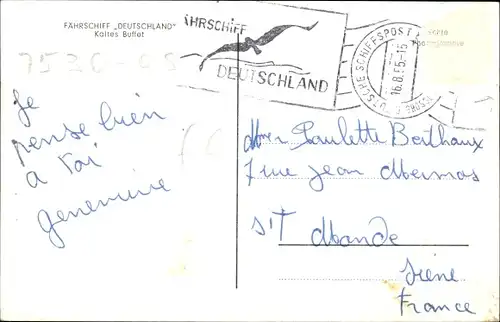 FÄHRSCHIFF „DEUTSCHLAND"
Kaltes Buffet
ÄHRSCHIFF
DEUTSCHLAND
DEUTSCHE SCHIFFSPOST
16.8.65-15
Je
pense bien
a toi
Genevieve
Paulette Berthaux
7 rue Jean Mermos
St Mande
Seine
France